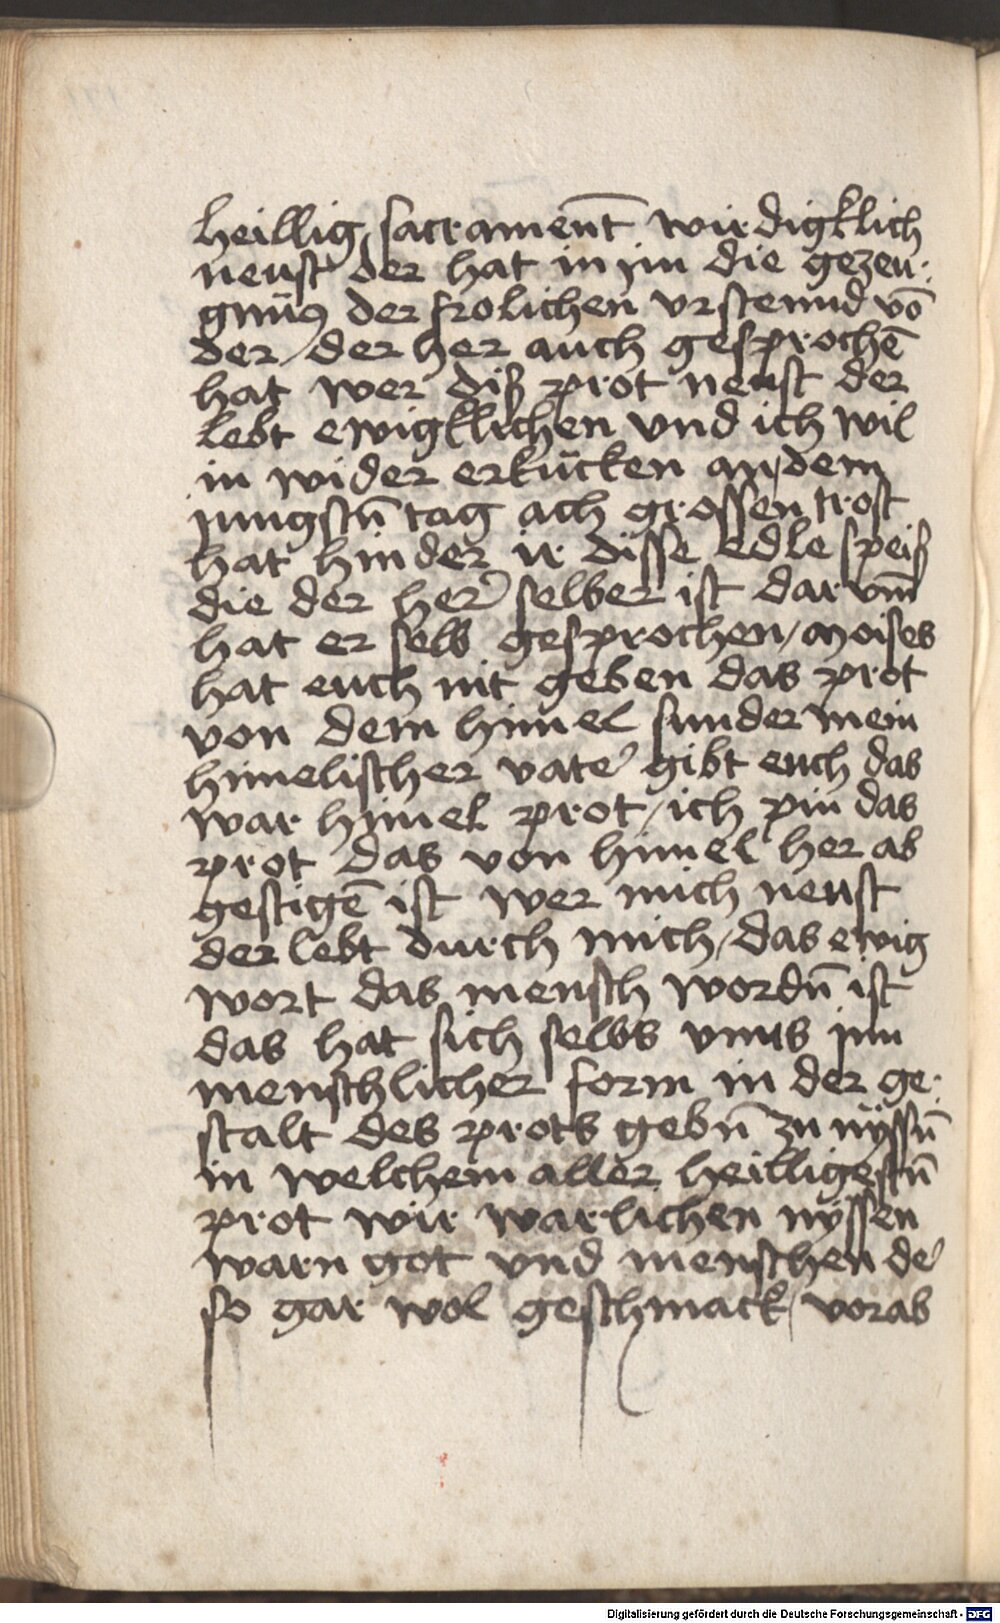 heillig sacrament̄ wirdigklich
neust der hat in jm die gezeu⸗
gnüs der frolichen vrstennd vō
der / der her auch gesprochē
hat wer diß prot neust der
lebt ewigklichen vnd ich wil
in wider erkücken an dem
jungstn̄ tag ach grossen trost
hat hinder ir disse edle speiß
die der her selber ist dar vm̄
hat er selb gesprochen / moises
hat euch nit geben das prot
von dem himel sunder mein
himelischer vater gibt euch das
war himel prot / ich pin das
prot das von himel her ab
gestigē ist wer mich neust
der lebt durch mich / das ewig
wort das mensch wordn̄ ist
das hat sich selbs vnns jnn
menschlicher form in der ge⸗
stalt des prots gebn̄ zu nÿssn̄
in welchem aller heilligestn̄
prot wir warlichen nÿssen
warn got vnd menschen der
so gar wol geschmack / vorab
Digitalisierung gefördert durch die Deutsche Forschungsgemeinschaft - DFG